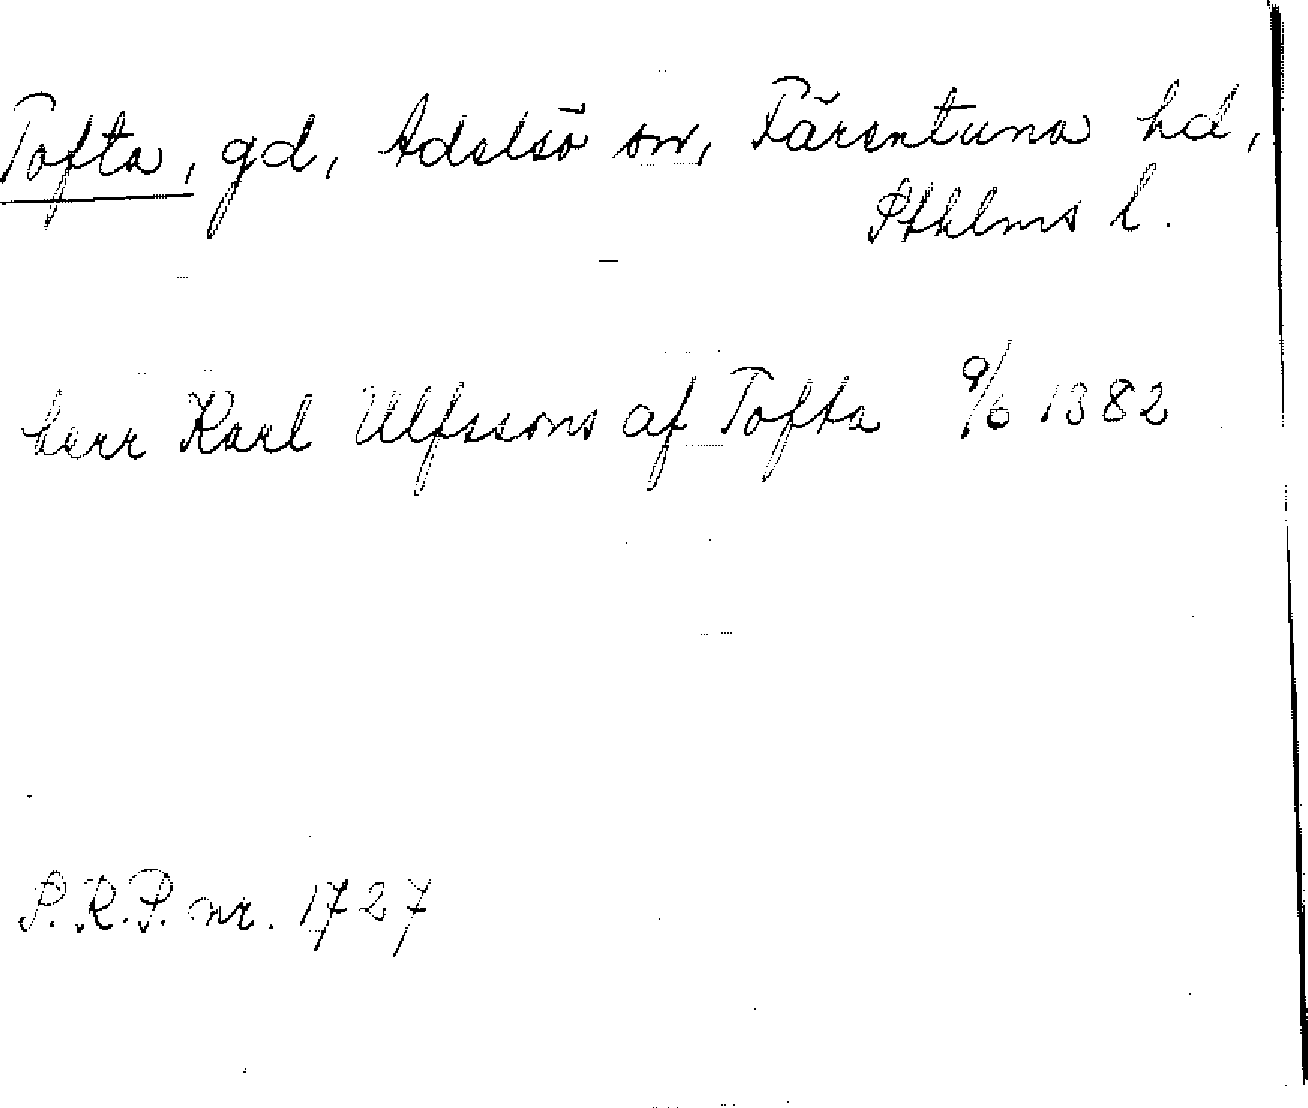 Tofta, gd, Adelsö sn, Färentuna hd,
Sthlms l.
herr Karl Ulfssons af Tofta 9/6 1382
S.R.P. nr. 1727